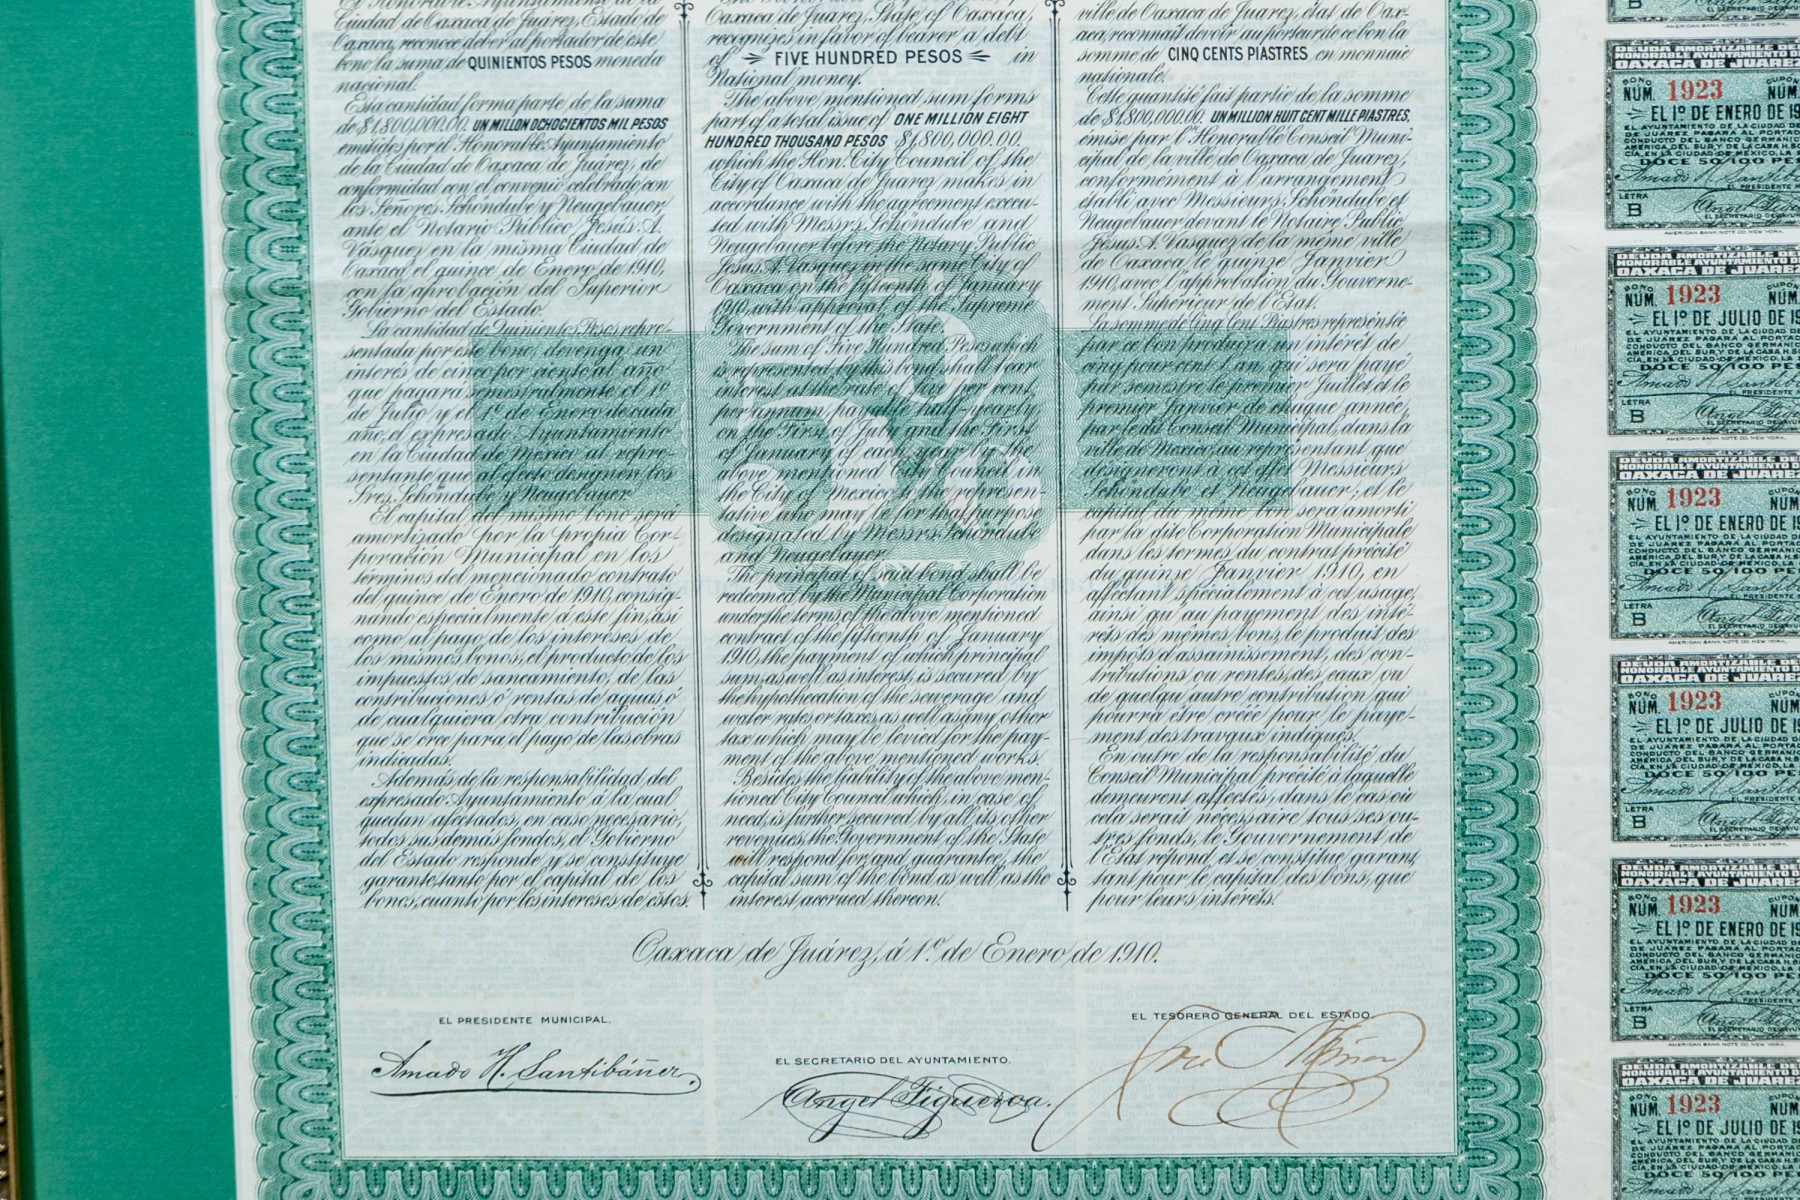 El Honorable Ayuntamiento de la
Ciudad de Oaxaca de Juárez, Estado de
Oaxaca, reconoce deber al portador de este
bono la suma de QUINIENTOS PESOS moneda
nacional.
Esta cantidad forma parte de la suma
de $1,800,000.00. UN MILLON OCHOCIENTOS MIL PESOS
emitidos por el Honorable Ayuntamiento
de la Ciudad de Oaxaca de Juárez, de
conformidad con el convenio celebrado con
los Señores Schöndube y Neugebauer
ante el Notario Público Jesús A.
Vásquez en la misma Ciudad de
Oaxaca el quince de Enero de 1910,
con la aprobación del Superior
Gobierno del Estado.
La cantidad de Quinientos Pesos repre-
sentada por este bono, devenga un
interés de cinco por ciento al año
que pagará semestralmente el 1º
de Julio y el 1º de Enero de cada
año, el expresado Ayuntamiento
en la Ciudad de México al repre-
sentante que al efecto designen los
Sres. Schöndube y Neugebauer.
El capital del mismo bono será
amortizado por la propia Cor-
poración Municipal en los
términos del mencionado contrato
del quince de Enero de 1910, consig-
nando especialmente á este fin, así
como al pago de los intereses de
los mismos bonos, el producto de los
impuestos de saneamiento, de las
contribuciones ó rentas de aguas ó
de cualquiera otra contribución
que se cree para el pago de las obras
indicadas.
Además de la responsabilidad del
expresado Ayuntamiento á la cual
quedan afectados, en caso necesario,
todos sus demás fondos, el Gobierno
del Estado responde y se constituye
garante, tanto por el capital de los
bonos, cuanto por los intereses de éstos.
Oaxaca de Juárez, State of Oaxaca,
recognizes in favor of bearer a debt
of FIVE HUNDRED PESOS in
National money.
The above mentioned sum forms
part of a total issue of ONE MILLION EIGHT
HUNDRED THOUSAND PESOS $1,800,000.00.
which the Hon. City Council of the
City of Oaxaca de Juarez makes in
accordance with the agreement execu-
ted with Messrs Schöndube and
Neugebauer before the Notary Public
Jesus A. Vasquez in the same City of
Oaxaca on the fifteenth of January
1910, with approval of the Supreme
Government of the State.
The sum of Five Hundred Pesos which
is represented by this bond shall bear
interest at the rate of five per cent.
per annum, payable half-yearly,
on the First of July and the First
of January of each year by the
above mentioned City Council in
the City of Mexico to the represen-
tative who may be for that purpose
designated by Messrs Schöndube
and Neugebauer.
The principal of said bond shall be
redeemed by the Municipal Corporation
under the terms of the above mentioned
contract of the fifteenth of January
1910, the payment of which principal
sum, as well as interest, is secured by
the hypothecation of the sewerage and
water rates or taxes, as well as any other
tax which may be levied for the pay-
ment of the above mentioned works.
Besides the liability of the above men-
tioned City Council which, in case of
need, is further secured by all its other
revenues, the Government of the State
will respond for, and guarantee, the
capital sum of the bond as well as the
interest accrued thereon.
ville de Oaxaca de Juarez, état de Oax-
aca, reconnait devoir au porteur de ce bon la
somme de CINQ CENTS PIASTRES en monnaie
nationale.
Cette quantité fait partie de la somme
de $1,800,000.00. UN MILLION HUIT CENT MILLE PIASTRES,
émise par l'Honorable Conseil Muni-
cipal de la ville de Oaxaca de Juarez,
conformément à l'arrangement
établi avec Messieurs Schöndube et
Neugebauer devant le Notaire Public,
Jésus A. Vasquez de la même ville
de Oaxaca le quinze Janvier
1910, avec l'approbation du Gouverne-
ment Supérieur de l'Etat.
La somme de Cinq Cent Piastres représentée
par ce bon produira un intérêt de
cinq pour cent l'an, qui sera payé
par semestre le premier Juillet et le
premier Janvier de chaque année,
par le dit Conseil Municipal, dans la
ville de Mexico, au représentant que
désigneront à cet effet Messieurs
Schöndube et Neugebauer; et le
capital du même bon sera amorti
par la dite Corporation Municipale
dans les termes du contrat précité
du quinze Janvier 1910, en
affectant spécialement à cet usage,
ainsi qu'au payement des inté-
rêts des mêmes bons, le produit des
impôts d'assainissement, des con-
tributions ou rentes, des eaux ou
de quelqu'autre contribution qui
pourra être créée pour le paye-
ment des travaux indiqués.
En outre de la responsabilité du
Conseil Municipal précité à laquelle
demeurent affectés, dans le cas où
cela serait nécessaire tous ses au-
tres fonds, le Gouvernement de
l'Etat répond et se constitue garant
tant pour le capital des bons, que
pour leurs intérêts.
5%
Oaxaca de Juárez, á 1º de Enero de 1910.
EL PRESIDENTE MUNICIPAL.
Amado H. Santibáñez
EL SECRETARIO DEL AYUNTAMIENTO.
Angel Figueroa.
EL TESORERO GENERAL DEL ESTADO.
B
AMERICAN BANK NOTE CO. NEW YORK.
DEUDA AMORTIZABLE DEL
HONORABLE AYUNTAMIENTO D
OAXACA DE JUAREZ
BONO NÚM. 1923 CUPON NÚM.
EL 1º DE ENERO DE 19
EL AYUNTAMIENTO DE LA CIUDAD DE
DE JUAREZ PAGARÁ AL PORTAD
CONDUCTO DEL BANCO GERMANIC
AMERICA DEL SUR, Y DE LA CASA H.
CIA, EN LA CIUDAD DE MEXICO, LA
DOCE 50/100 PE
EL PRESIDENTE
LETRA
B
AMERICAN BANK NOTE CO. NEW YORK.
DEUDA AMORTIZABLE DEL
HONORABLE AYUNTAMIENTO D
OAXACA DE JUAREZ
BONO NÚM. 1923 CUPON NÚM.
EL 1º DE JULIO DE 19
LETRA
B
AMERICAN BANK NOTE CO. NEW YORK.
DEUDA AMORTIZABLE DEL
HONORABLE AYUNTAMIENTO D
OAXACA DE JUAREZ
BONO NÚM. 1923 CUPON NÚM.
EL 1º DE ENERO DE 19
DOCE 50/100 PE
LETRA
B
AMERICAN BANK NOTE CO. NEW YORK.
DEUDA AMORTIZABLE DEL
HONORABLE AYUNTAMIENTO D
OAXACA DE JUAREZ
BONO NÚM. 1923 CUPON NÚM.
EL 1º DE JULIO DE 19
DOCE 50/100 PE
LETRA
B
AMERICAN BANK NOTE CO. NEW YORK.
HONORABLE AYUNTAMIENTO D
OAXACA DE JUAREZ
BONO NÚM. 1923 CUPON NÚM.
EL 1º DE ENERO DE 19
DOCE 50/100 PE
LETRA
B
AMERICAN BANK NOTE CO. NEW YORK.
DEUDA AMORTIZABLE DEL
HONORABLE AYUNTAMIENTO D
OAXACA DE JUAREZ
BONO NÚM. 1923 CUPON NÚM.
EL 1º DE JULIO DE 19